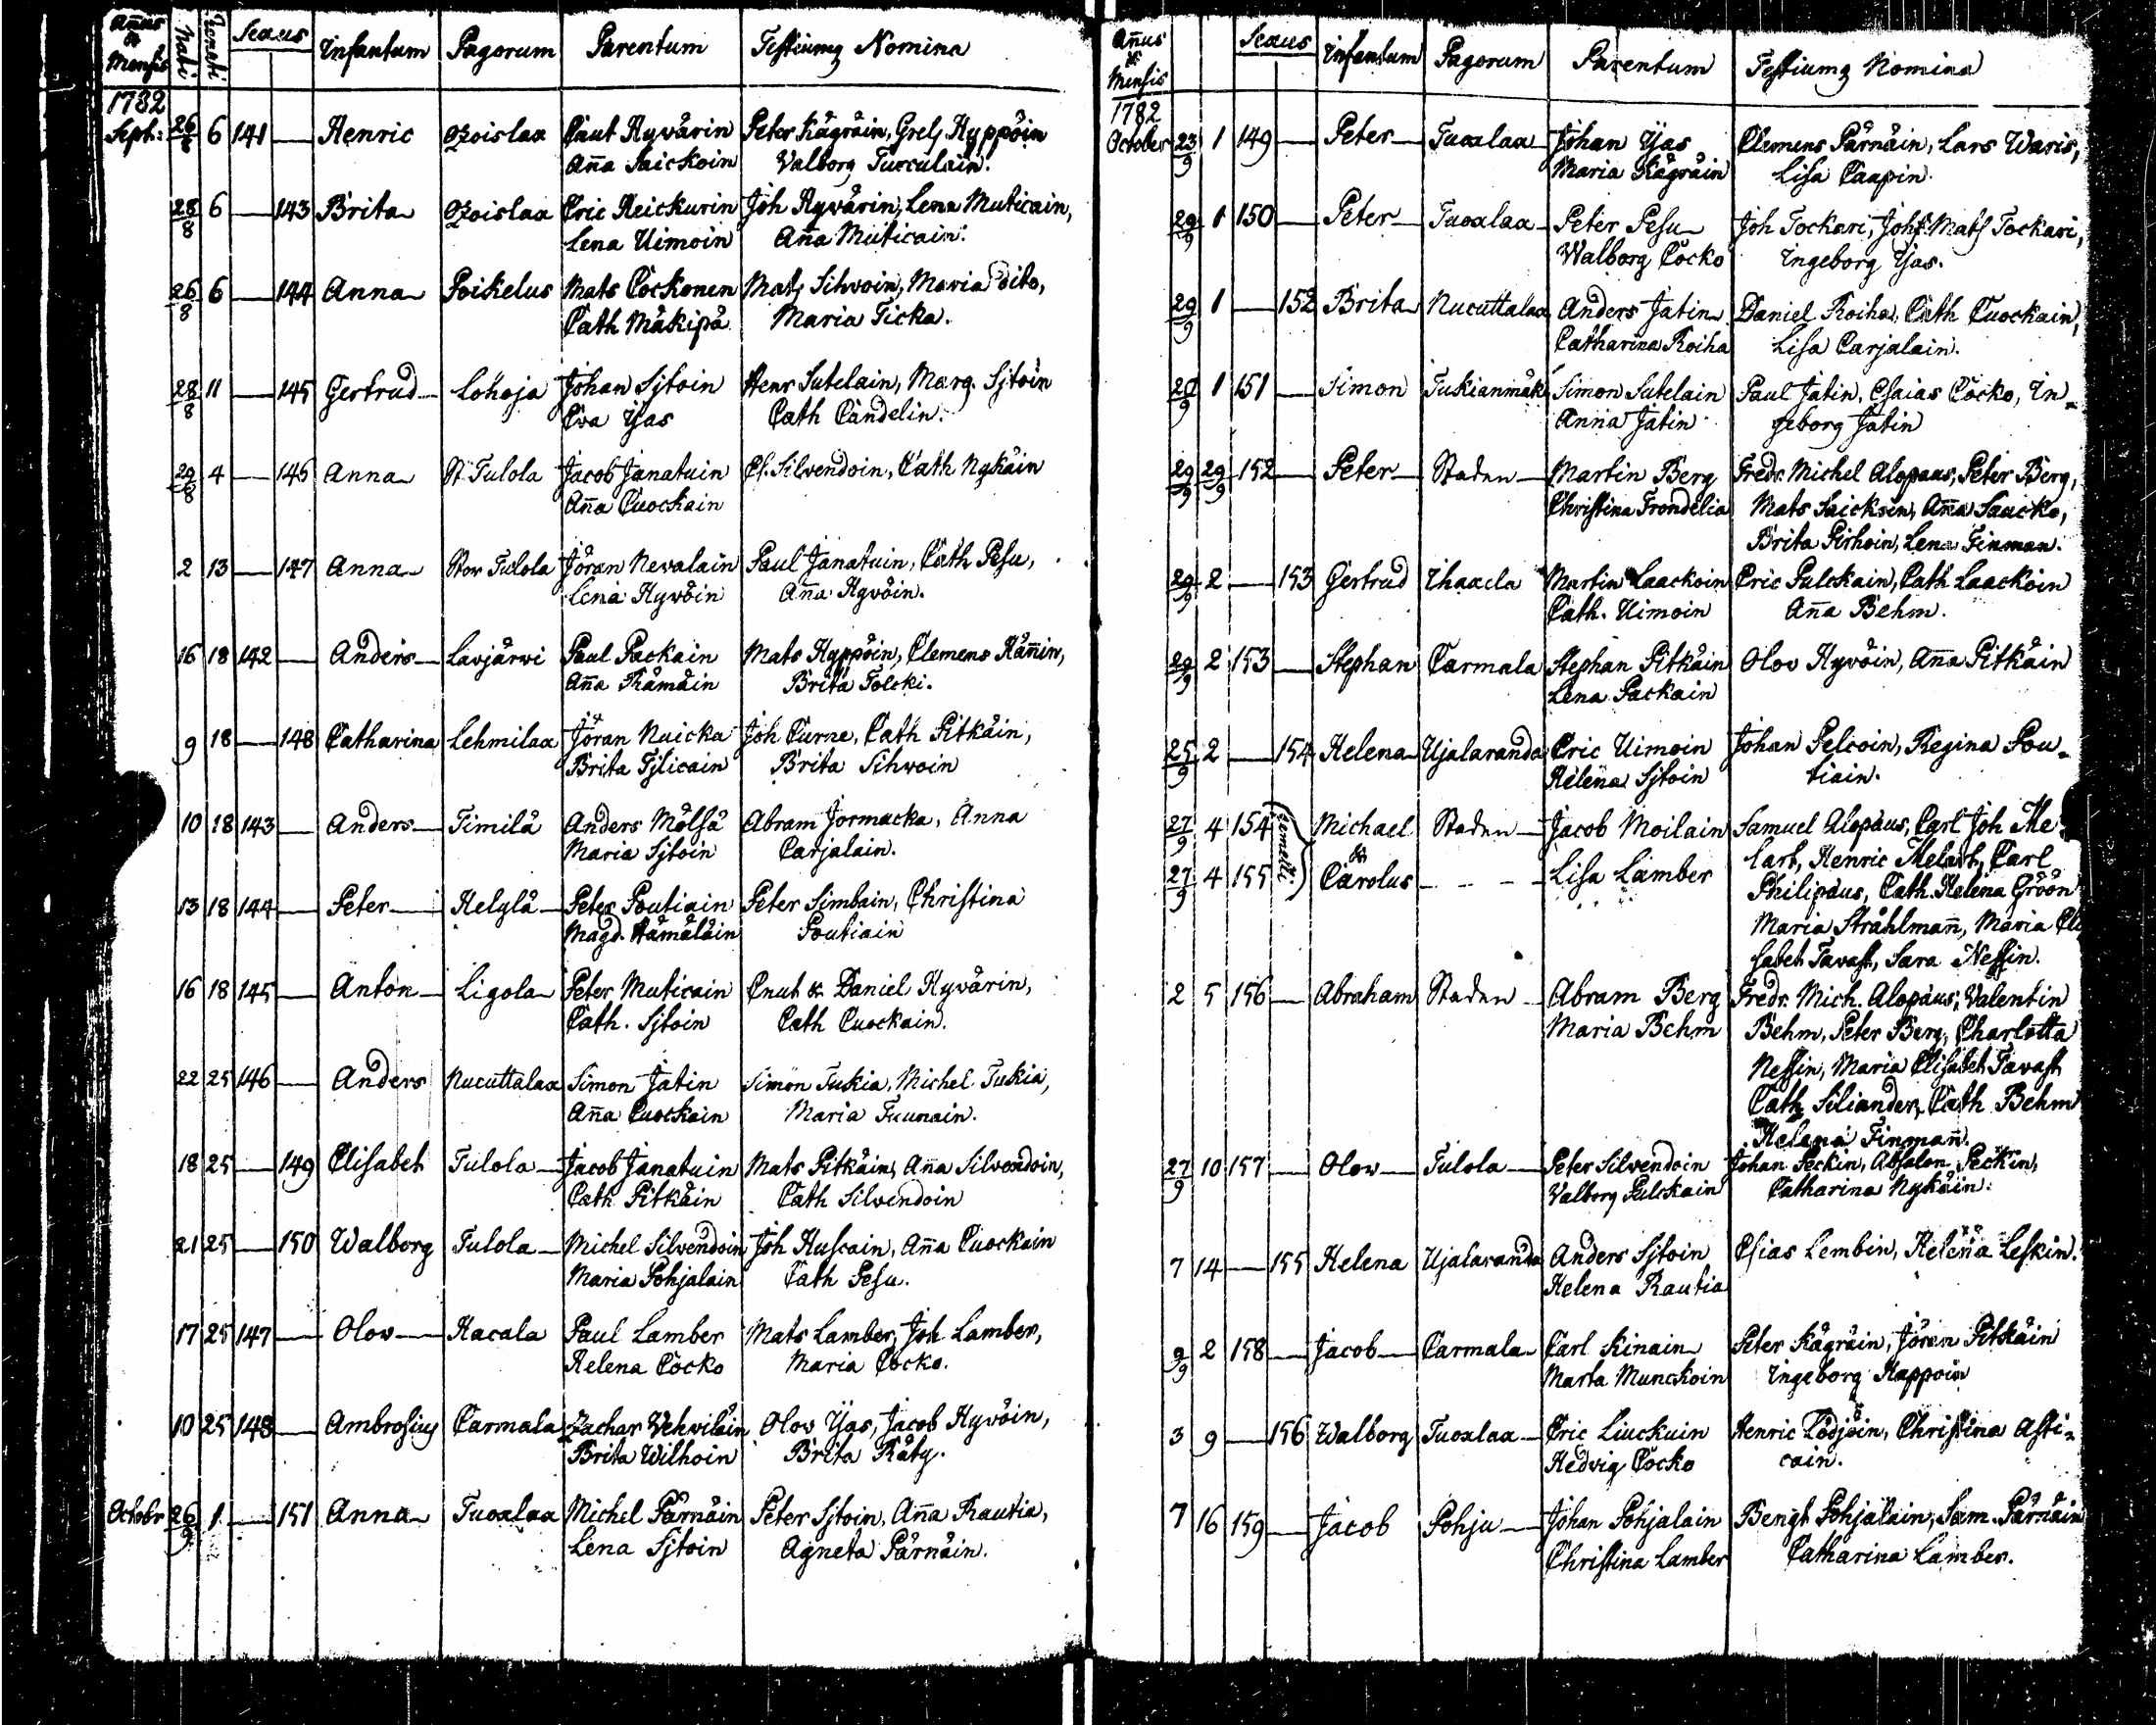 Añus & Mensis Nati Renati Sexus Infantum Pagorum Parentum Testiumq Nomina
1782
Sept: 26/8 6 141 — Henric Oroislax Cnut Hyvärin Peter Kägräin, Grels Hyppöin
Aña Saickoin Valborg Turculain.
28/8 6 — 143 Brita Oroislax Eric Reickurin Joh Hyvärin, Lena Muticain,
Lena Uimoin Aña Muticain.
26/8 6 — 144 Anna Poikelus Mats Cockonen Mats Sihvoin, Maria Dito,
Cath Mäkipä Maria Ticka.
28/8 11 — 145 Gertrud Lohoja Johan Sjtoin Henr Sutelain, Marg. Sjtoin
Eva Yas Cath Candelin.
29/8 4 — 146 Anna St Tulola Jacob Janatuin Ef. Silvendoin, Cath Nykäin
Aña Cuockain
2 13 — 147 Anna Stor Tulola Jöran Nevalain Paul Janatuin, Cath Pesu,
Lena Hyvöin Aña Hyvöin.
16 18 142 — Anders Lavjärvi Paul Packain Mats Hyppöin, Clemens Häñin,
Aña Rämäin Brita Tolcki.
9 18 — 148 Catharina Lehmilax Jöran Nuicka Joh Curne, Cath Pitkäin,
Brita Tjlicain Brita Sihvoin
10 18 143 — Anders Timilä Anders Mölsä Abram Jormacka, Anna
Maria Sjtoin Carjalain.
13 18 144 — Peter Helylä Peter Poutiain Peter Simbain, Christina
Magd. Hämäläin Poutiain
16 18 145 — Anton Ligola Peter Muticain Cnut & Daniel Hyvärin,
Cath. Sjtoin Cath Cuockain.
22 25 146 — Anders Nucuttalax Simon Jatin Simon Tukia, Michel Tukia,
Aña Cuockain Maria Tuunain.
18 25 — 149 Elisabet Tulola Jacob Janatuin Mats Pitkäin, Aña Silvendoin,
Cath Pitkäin Cath Silvendoin
21 25 — 150 Walborg Tulola Michel Silvendoin Joh Huscain, Aña Cuockain
Maria Pohjalain Cath Pesu.
17 25 147 — Olov Hacala Paul Lamber Mats Lamber, Joh Lamber,
Helena Cocko Maria Cocko.
10 25 148 — Ambrosius Carmala Zachar Vehviläin Olov Yas, Jacob Hyvöin,
Brita Wilhoin Brita Räty.
Octobr 26/9 1 — 151 Anna Tuoxlax Michel Pärnäin Peter Sjtoin, Aña Rautia,
Lena Sjtoin Agneta Pärnäin.
Añus & Mensis Sexus Infantum Pagorum Parentum Testiumq Nomina
1782
October 23/9 1 149 — Peter Tuoxlax Johan Yas Clemens Pärnäin, Lars Waris,
Maria Kägräin Lisa Caapin.
29/9 1 150 — Peter Tuoxlax Peter Pesu Joh Tockari, Joh & Mats Tockari,
Walborg Cocko Ingeborg Yas.
29/9 1 — 152 Brita Nucuttalax Anders Jatin Daniel Roiha, Cath Cuockain,
Catharina Roiha Lisa Carjalain.
29/9 1 151 — Simon Tukianmäk Simon Sutelain Paul Jatin, Esaias Cocko, In-
Anna Jatin geborg Jatin
29/9 29/9 152 — Peter Staden Martin Berg Fredr. Michel Alopæus, Peter Berg,
Christina Trondelia Mats Saickoin, Aña Saucko,
Brita Pirhoin, Lena Finman.
29/9 2 — 153 Gertrud Ihaacla Martin Laackoin Eric Pulckain, Cath Laackoin
Cath. Uimoin Aña Behm.
29/9 2 153 — Stephan Carmala Stephan Pitkäin Olov Hyvöin, Aña Pitkäin
Lena Packain
25/9 2 — 154 Helena Ujalaranda Eric Uimoin Johan Pelcoin, Regina Pou-
Helena Sjtoin tiain.
27/9 4 154 Gemelli. Michael Staden Jacob Moilain Samuel Alopæus, Carl Joh Me
& lart, Henric Melart, Carl
27/9 4 155 Carolus Lisa Lamber
Philipæus, Cath. Helena Gröön
Maria Ståhlmañ, Maria Eli
sabet Tavast, Sara Nessin.
2 5 156 — Abraham Staden Abram Berg Fredr. Mich. Alopæus, Valentin
Maria Behm Behm, Peter Berg, Charlotta
Nessin, Maria Elisabet Tavast
Cath Siliander, Cath Behm
Helena Finmañ.
27/9 10 157 — Olov Tulola Peter Silvendoin Johan Peckin, Absalon Peckin,
Valborg Pulckain Catharina Nykäin.
7 14 — 155 Helena Ujalaranda Anders Sjtoin Esias Lembin, Helena Leskin.
Helena Rautia
9/9 2 158 — Jacob Carmala Carl Kinain Peter Kägräin, Jöran Pitkäin
Marta Munckoin Ingeborg Happoin
3 9 — 156 Walborg Tuoxlax Eric Liuckuin Henric Lödjöin, Christina Asti-
Hedvig Cocko cain.
7 16 159 — Jacob Pohju Johan Pohjalain Bengt Pohjalain, Sam. Pärnäin
Christina Lamber Catharina Lamber.